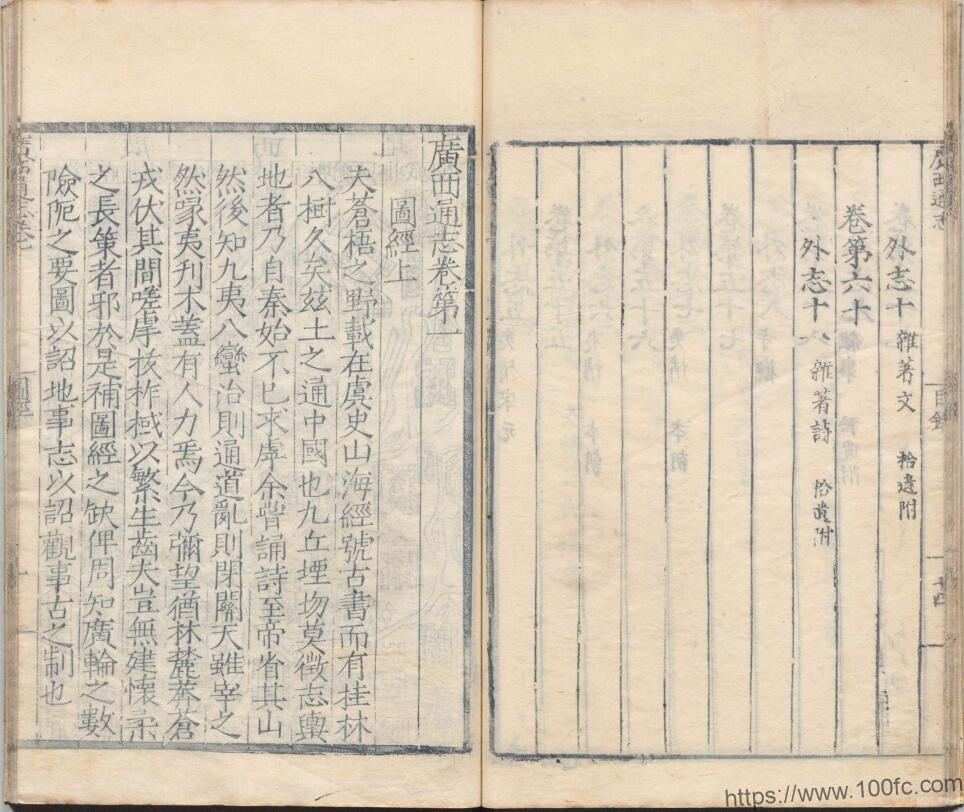 外志十 雜著文 拾遺附
卷第六十
外志十八 雜著詩 拾遺附
廣西通志
目錄
廣西通志卷第一
圖經上
夫蒼梧之野載在虞史山海經號古書而有桂林
八樹久矣茲土之通中國也九丘堙物莫徵志輿
地者乃自秦始不已來虖余嘗誦詩至帝省其山
然後知九夷八蠻治則通道亂則閉關天雖宰之
然喙夷刋木蓋有人力焉今乃彌望猶林麓莽蒼
戎伏其間嗟虖拔柞棫以繁生齒夫豈無建懷柔
之長策者邪於是補圖經之缺俾周知廣輪之數
險阨之要圖以詔地事志以詔觀事古之制也
圖經
https://www.100fc.com